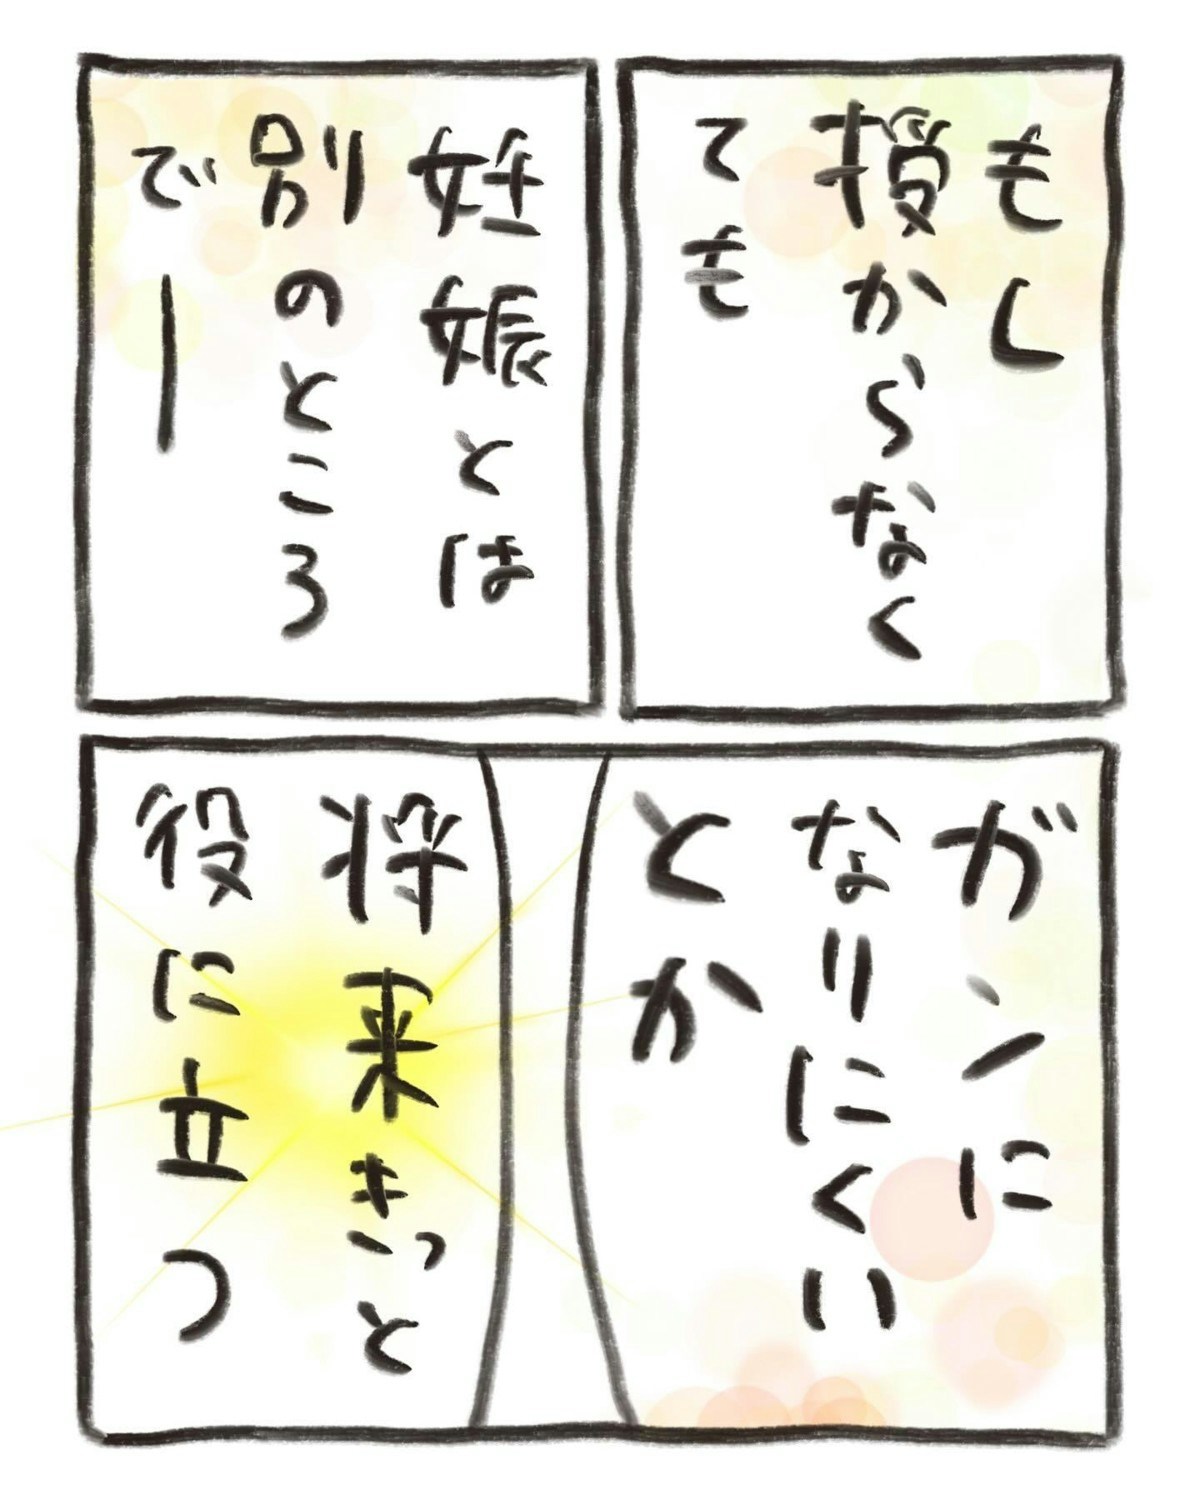 もし
授からなく
ても
妊娠とは
別のところ
でー
ガンに
なりにくい
とか
将来きっと
役に立つ